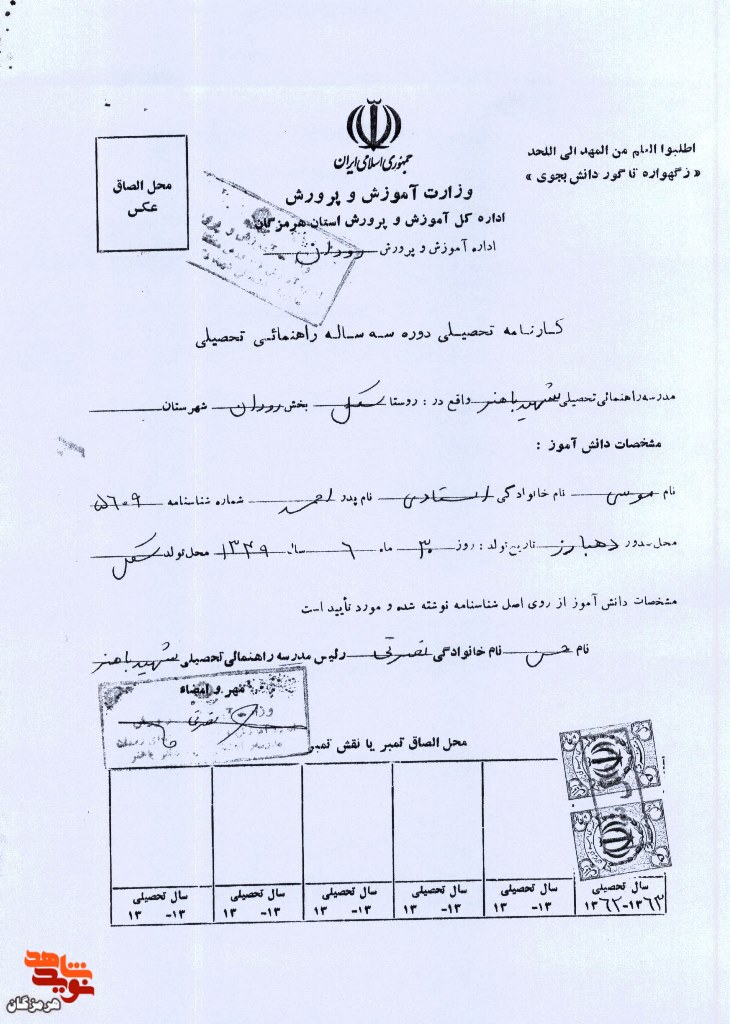 جمهوری اسلامی ایران
اطلبوا العلم من المهد الی اللحد
« زگهواره تا گور دانش بجوی »
محل الصاق
عکس
وزارت آموزش و پرورش
اداره کل آموزش و پرورش استان هرمزگان
اداره آموزش و پرورش رودان
کارنامه تحصیلی دوره سه ساله راهنمائی تحصیلی
مدرسه راهنمائی تحصیلی شهید باهنر واقع در : روستا بخش رودان شهرستان
مشخصات دانش آموز :
نام موسی نام خانوادگی استادی نام پدر احمد شماره شناسنامه ۵۶۰۹
محل صدور دهبارز تاریخ تولد : روز ۳۰ ماه ۶ سال ۱۳۴۹ محل تولد
مشخصات دانش آموز از روی اصل شناسنامه نوشته شده و مورد تأیید است
نام حسن نام خانوادگی نصرتی رئیس مدرسه راهنمائی تحصیلی شهید باهنر
مهر و امضاء
محل الصاق تمبر یا نقش تمبر
سال تحصیلی سال تحصیلی سال تحصیلی سال تحصیلی سال تحصیلی سال تحصیلی
۱۳۶۲-۱۳۶۳ ۱۳ -۱۳ ۱۳ -۱۳ ۱۳ -۱۳ ۱۳ -۱۳ ۱۳ -۱۳
نوید شاهد
هرمزگان